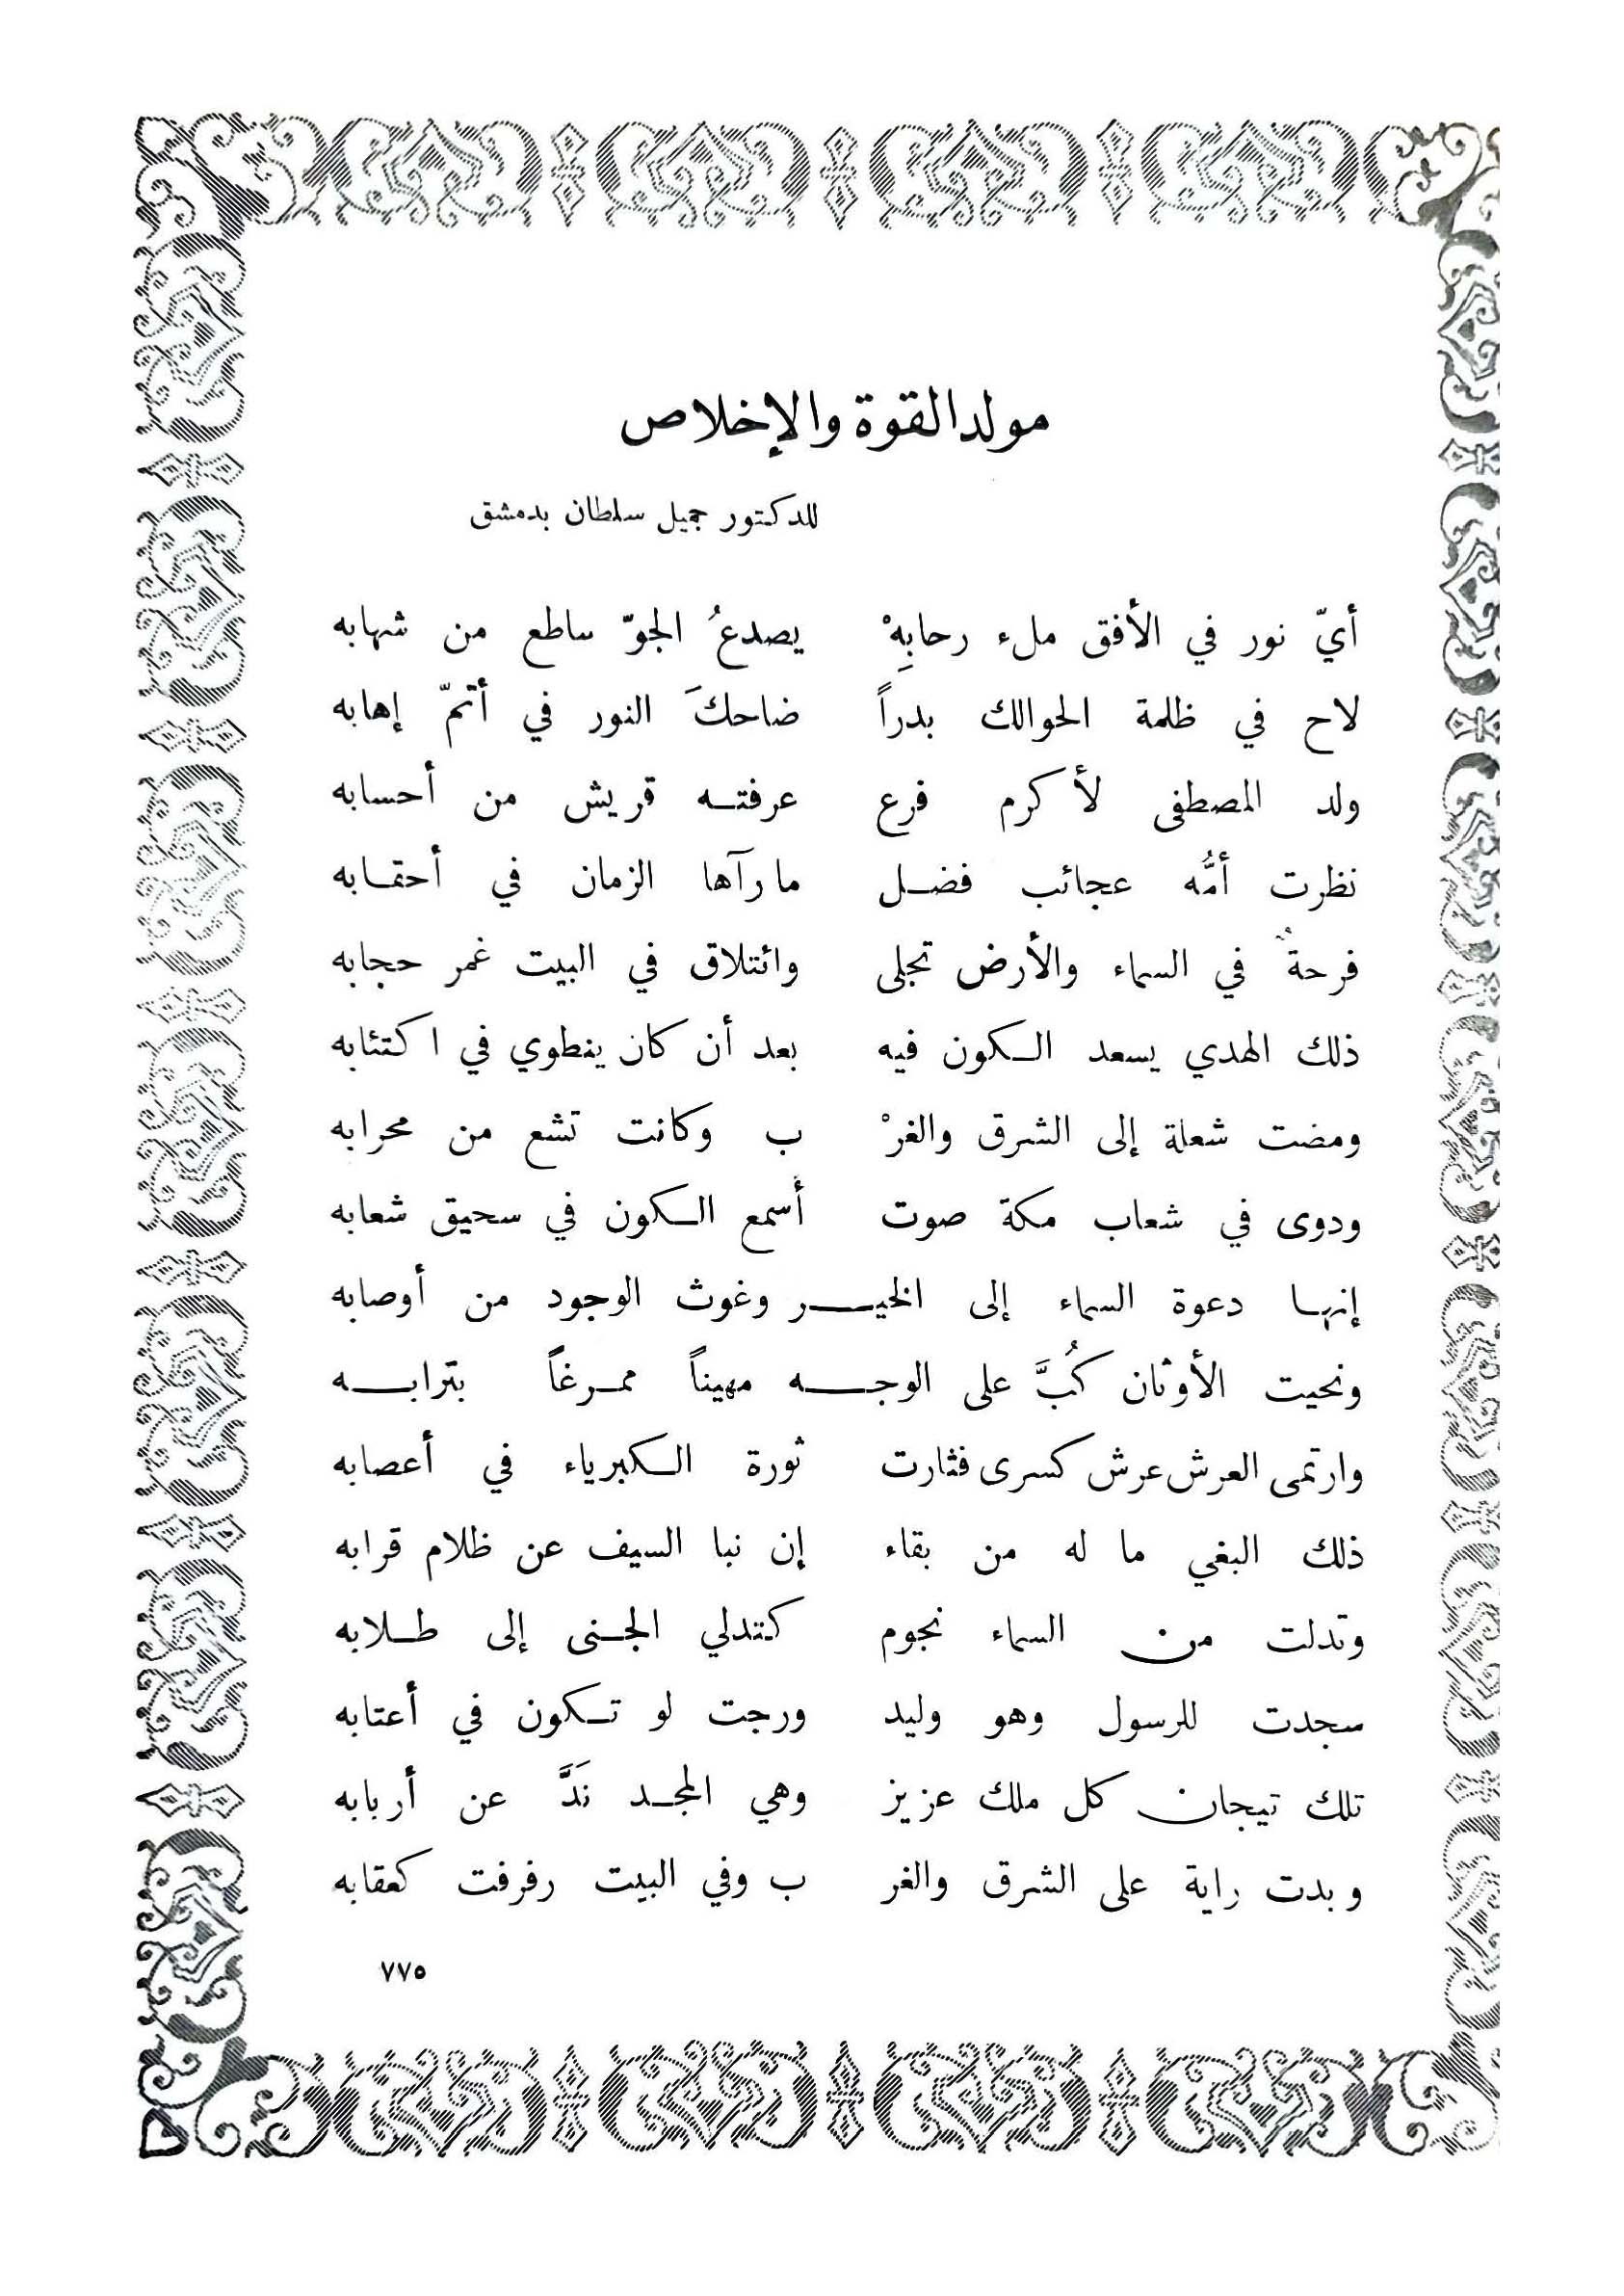 مولد القوة والإخلاص
للدكتور جميل سلطان بدمشق
أيّ نور في الأفق ملء رحابِهْ يصدعُ الجوّ ساطع من شهابه
لاح في ظلمة الحوالك بدراً ضاحكَ النور في أتمّ إهابه
ولد المصطفى لأكرم فرع عرفته قريش من أحسابه
نظرت أمُّه عجائب فضل ما رآها الزمان في أحقابه
فرحةٌ في السماء والأرض تجلى وائتلاق في البيت غمر حجابه
ذلك الهدي يسعد الكون فيه بعد أن كان ينطوي في اكتئابه
ومضت شعلة إلى الشرق والغرْ ب وكانت تشع من محرابه
ودوى في شعاب مكة صوت أسمع الكون في سحيق شعابه
إنها دعوة السماء إلى الخيـــر وغوث الوجود من أوصابه
ونحيت الأوثان كُبَّ على الوجـــه مهيناً ممرغاً بترابه
وارتمى العرش عرش كسرى فثارت ثورة الكبرياء في أعصابه
ذلك البغي ما له من بقاء إن نبا السيف عن ظلام قرابه
وتدلت من السماء نجوم كتدلي الجنى إلى طلابه
سجدت للرسول وهو وليد ورجت لو تكون في أعتابه
تلك تيجان كل ملك عزيز وهي المجد نَدَّ عن أربابه
وبدت راية على الشرق والغر ب وفي البيت رفرفت كعقابه
٧٧٥